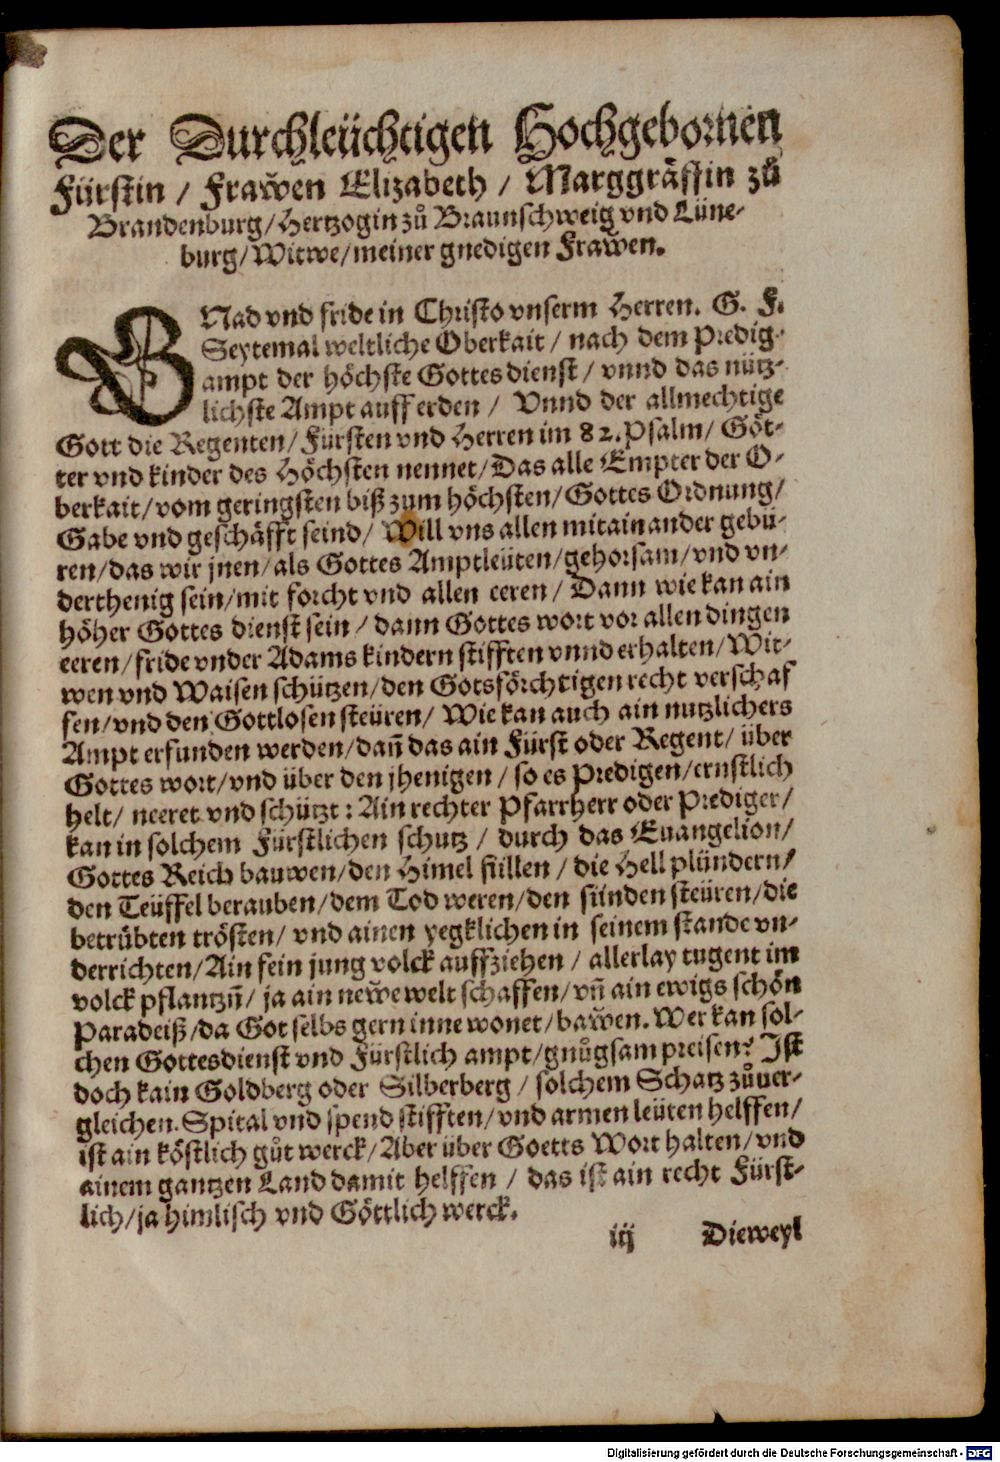 Der Durchleüchtigen Hochgebornen
Fürstin / Frawen Elizabeth / Marggräffin zů
Brandenburg/Hertzogin zů Braunschweig vnd Lüne-
burg/Witwe/meiner gnedigen Frawen.
GNad vnd fride in Christo vnserm Herren. G. F.
Seytemal weltliche Oberkait / nach dem Predig-
ampt der höchste Gottes dienst / vnnd das nütz-
lichste Ampt auff erden / Vnnd der allmechtige
Gott die Regenten/Fürsten vnd Herren im 82.Psalm/ Göt-
ter vnd kinder des Höchsten nennet/Das alle Empter der O-
berkait/vom geringsten biß zum höchsten/Gottes Ordnung/
Gabe vnd geschäfft seind/ Will vns allen mitainander gebü-
ren/das wir jnen/als Gottes Amptleüten/gehorsam/vnd vn-
derthenig sein/mit forcht vnd allen eeren/ Dann wie kan ain
höher Gottes dienst sein / dann Gottes wort vor allen dingen
eeren/fride vnder Adams kindern stifften vnnd erhalten/Wit-
wen vnd Waisen schützen/den Gotsförchtigen recht verschaf
fen/vnd den Gottlosen steüren/ Wie kan auch ain nutzlichers
Ampt erfunden werden/dañ das ain Fürst oder Regent/ über
Gottes wort/vnd über den jhenigen / so es Predigen/ernstlich
helt/ neeret vnd schützt: Ain rechter Pfarrherr oder Prediger/
kan in solchem Fürstlichen schutz / durch das Euangelion/
Gottes Reich bauwen/den Himel füllen / die Hell plündern/
den Teüffel berauben/dem Tod weren/den sünden steüren/die
betrübten trösten/ vnd ainen yegklichen in seinem stande vn-
derrichten/Ain fein jung volck auffziehen / allerlay tugent im
volck pflantzñ/ ja ain newe welt schaffen/vñ ain ewigs schön
Paradeiß/da Got selbs gern inne wonet/bawen. Wer kan sol-
chen Gottesdienst vnd Fürstlich ampt/gnůgsam preisen? Ist
doch kain Goldberg oder Silberberg / solchem Schatz zůuer-
gleichen. Spital vnd spend stifften/vnd armen leüten helffen/
ist ain köstlich gůt werck/Aber über Goetts Wort halten/vnd
ainem gantzen Land damit helffen / das ist ain recht Fürst-
lich/ja himlisch vnd Göttlich werck.
iij Dieweyl
Digitalisierung gefördert durch die Deutsche Forschungsgemeinschaft - DFG